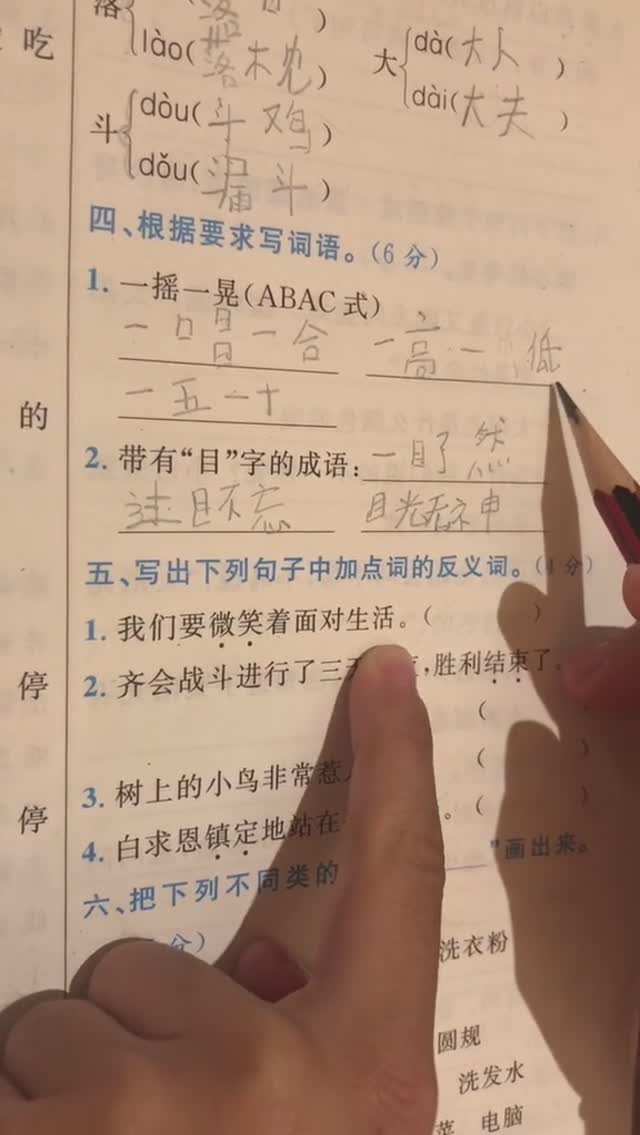 吃
落
lào(落木忱)
大 dà(大人)
dài(大夫)
斗 dòu(斗鸡)
dǒu(漏斗)
四、根据要求写词语。(6分)
1. 一摇一晃(ABAC式)
一唱一合 一高一低
一五一十
2. 带有“目”字的成语:一目了然
过目不忘 目光无神
五、写出下列句子中加点词的反义词。( 分)
1. 我们要微笑着面对生活。( )
的
2. 齐会战斗进行了三天 ,胜利结束了。
( )
停
3. 树上的小鸟非常惹 ( )
4. 白求恩镇定地站在 。( )
停
六、把下列不同类的 ”画出来。
分)
洗衣粉
圆规
洗发水
菜 电脑